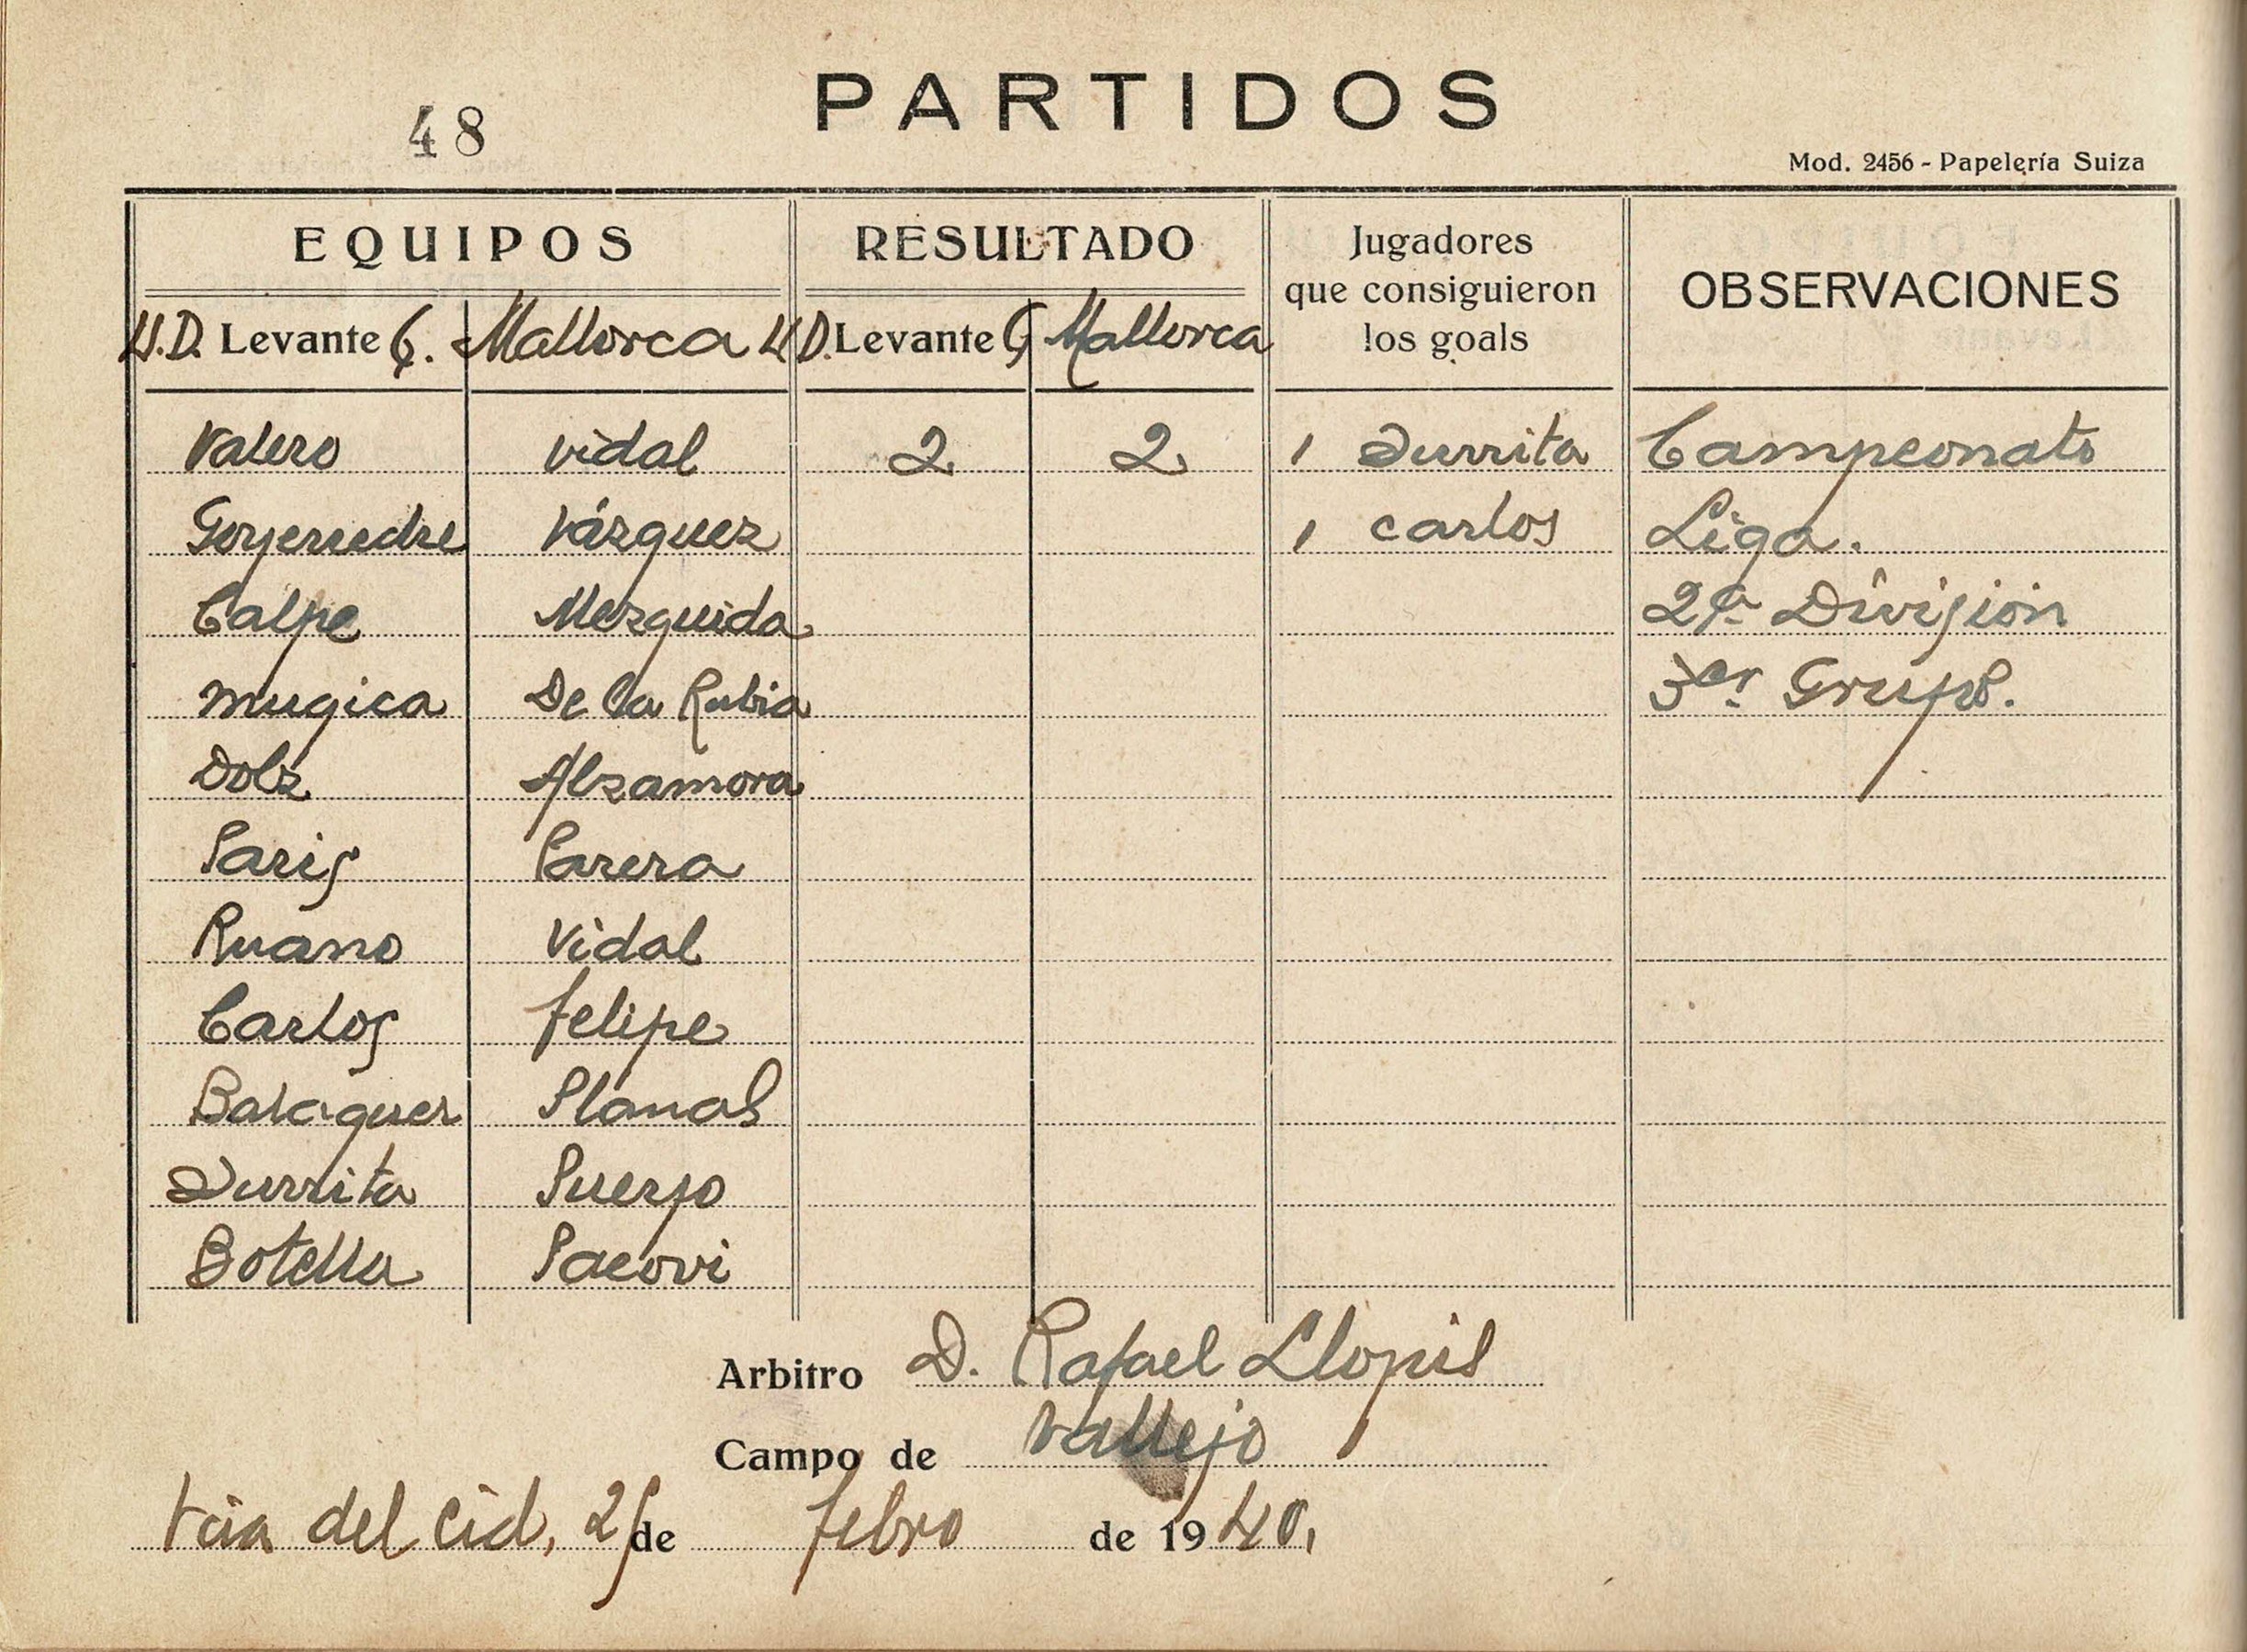 48
PARTIDOS
Mod. 2456 - Papelería Suiza
EQUIPOS RESULTADO Jugadores que consiguieron los goals OBSERVACIONES
U.D. Levante G. Mallorca U.D. Levante G Mallorca
Valero Vidal 2 2 1 Zurrita Campeonato
Goyeneche Vázquez 1 Carlos Liga.
Calpe Mezquida 2ª División
Mugica De la Rubia 3er Grupo.
Dolz Alzamora
Paris Parera
Ruano Vidal
Carlos Felipe
Balaguer Planas
Zurrita
Botella Pacovi
Arbitro D. Rafael Llopis
Campo de Vallejo
del Cid, 25 de febro de 1940.